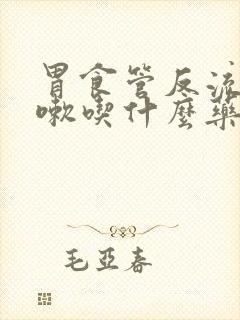 胃食管反流
嗽喫什麼藥
毛亞春